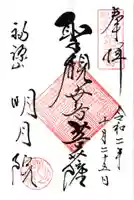 奉拝
令和二年
十月二十五日
聖観世音菩薩
明月院